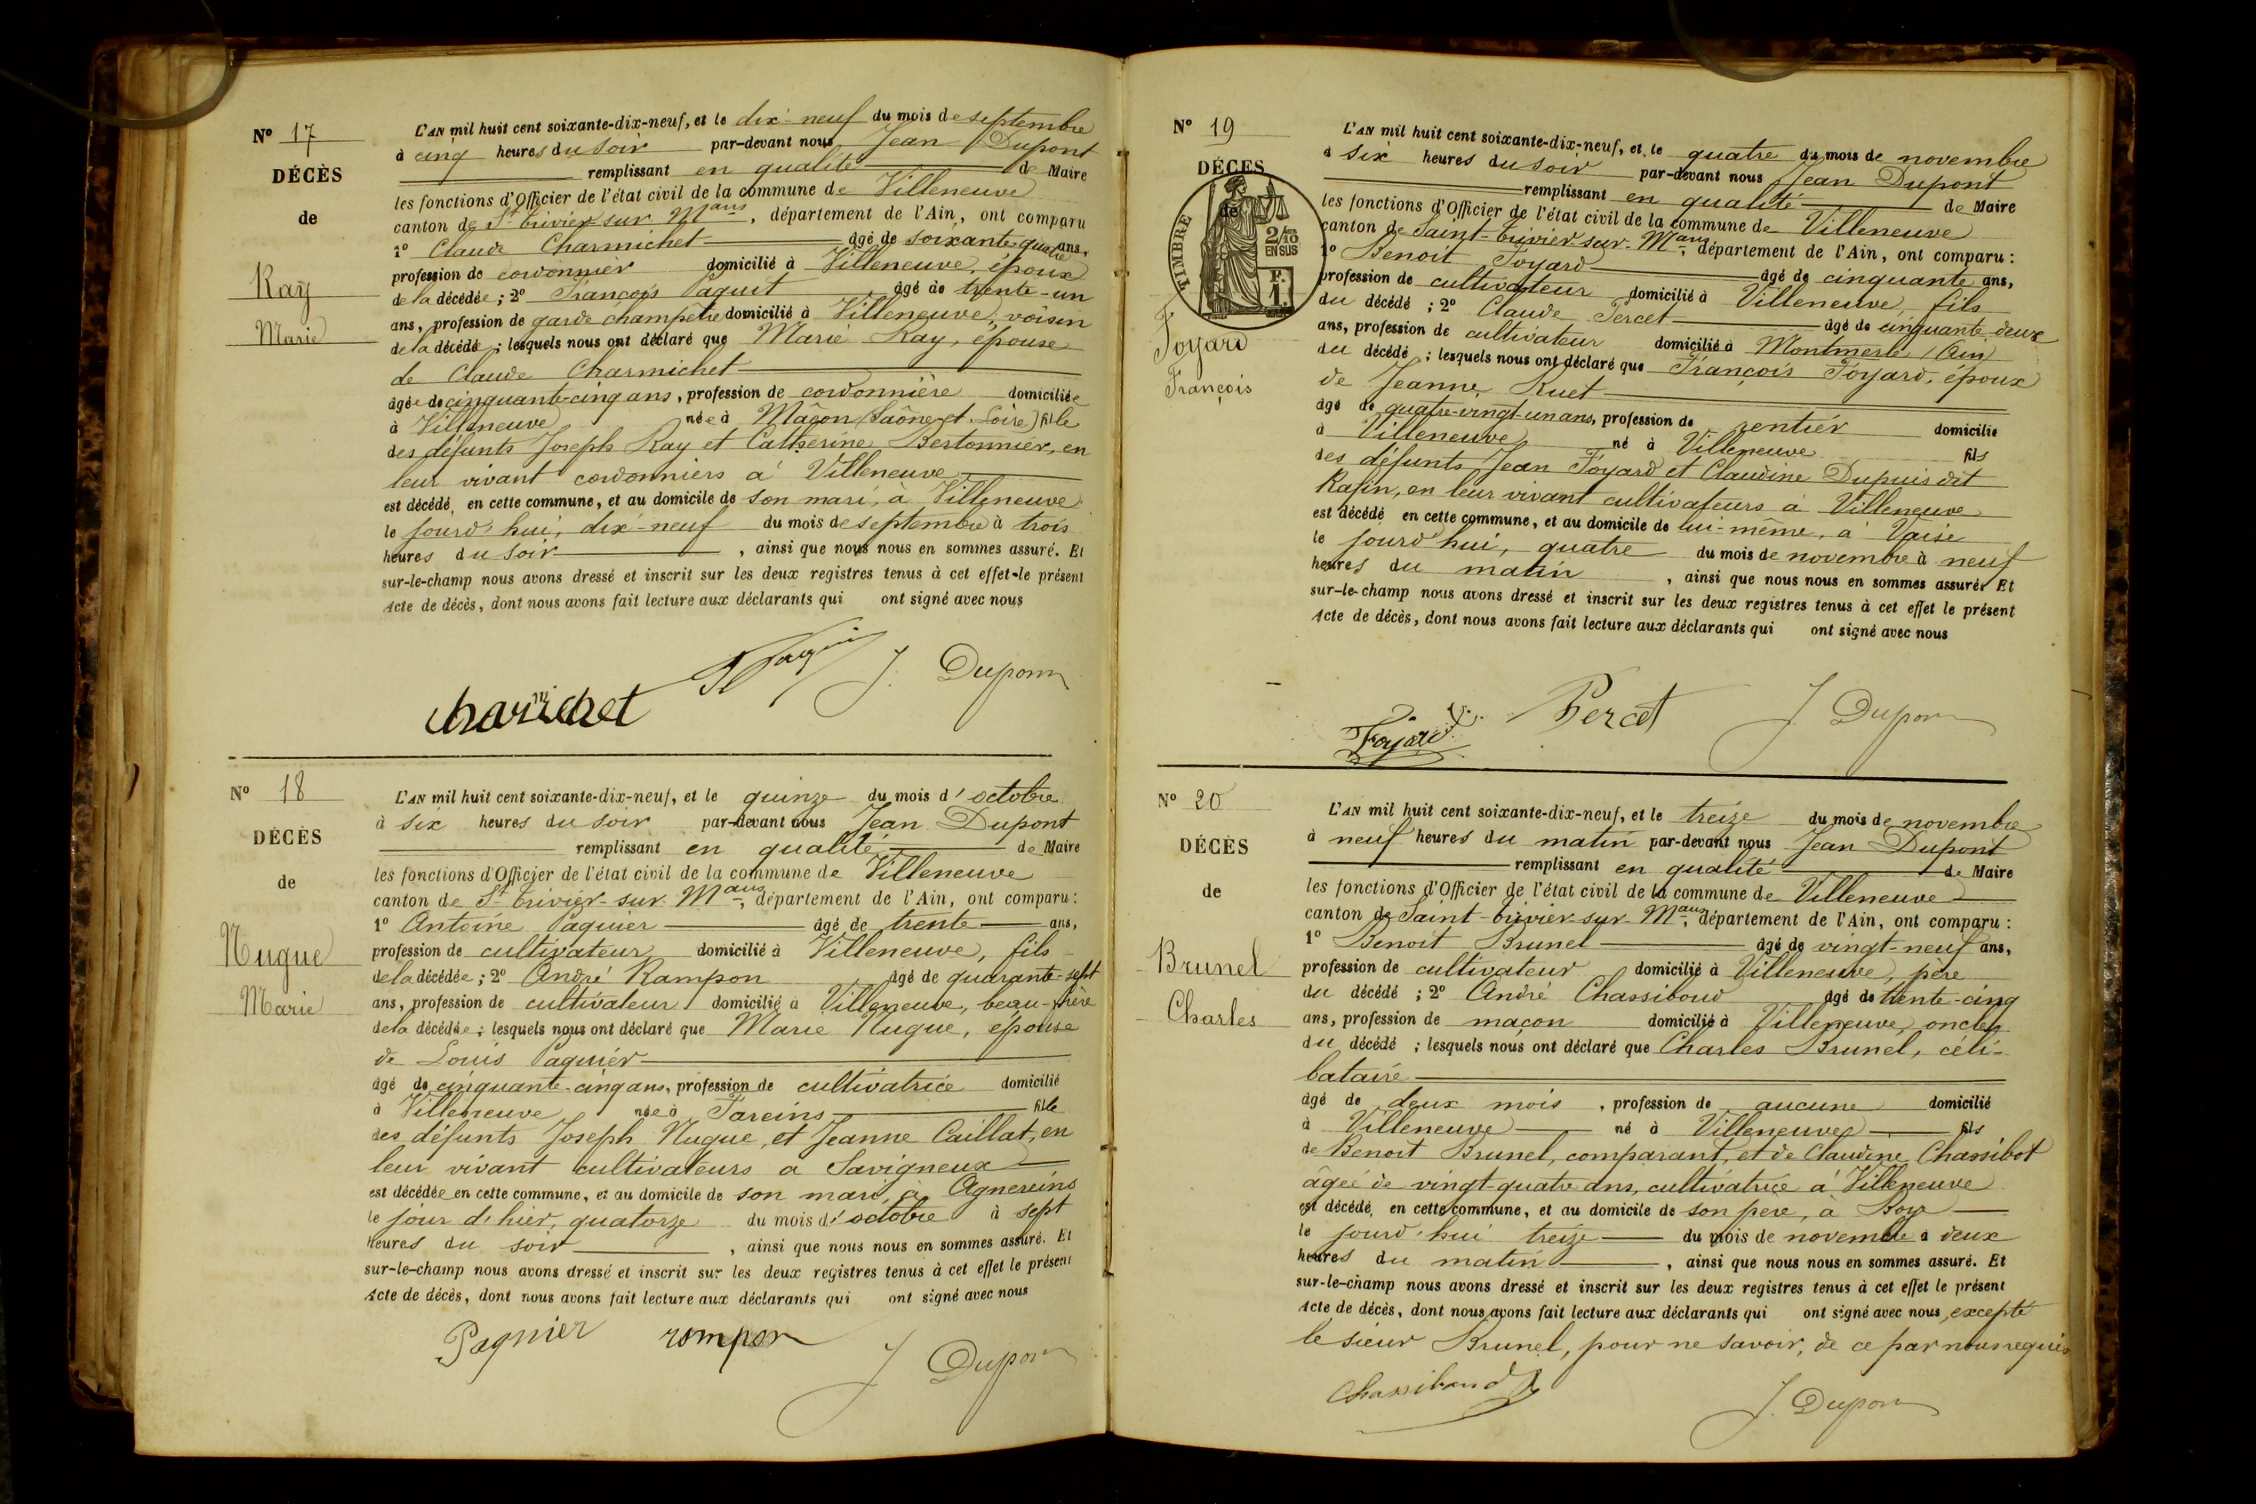 N° 17
DÉCÈS
de
Ray
Marie
L'AN mil huit cent soixante-dix-neuf, et le dix-neuf du mois de septembre
à cinq heures du soir par-devant nous Jean Dupont
remplissant en qualité de Maire
les fonctions d'Officier de l'état civil de la commune de Villeneuve
canton de St trivier sur Mans, département de l'Ain, ont comparu
1° Claude Charmichet âgé de soixante quatre ans,
profession de cordonnier domicilié à Villeneuve, époux
de la décédée; 2° François Paquit âgé de trente-un
ans, profession de garde champêtre domicilié à Villeneuve, voisin
de la décédé; lesquels nous ont déclaré que Marie Ray, épouse
de Claude Charmichet
âgée de cinquante-cinq ans, profession de cordonnière domiciliée
à Villeneuve née à Mâcon (Saône et Loire) fille
des défunts Joseph Ray et Catherine Bertonnier, en
leur vivant cordonniers à Villeneuve
est décédé en cette commune, et au domicile de son mari, à Villeneuve
le jourd'hui, dix-neuf du mois de septembre à trois
heures du soir, ainsi que nous nous en sommes assuré. Et
sur-le-champ nous avons dressé et inscrit sur les deux registres tenus à cet effet le présent
Acte de décès, dont nous avons fait lecture aux déclarants qui ont signé avec nous
J. Dupon
charmichet
N° 18
DÉCÈS
de
Nugue
Marie
L'AN mil huit cent soixante-dix-neuf, et le quinze du mois d'octobre
à six heures du soir par-devant nous Jean Dupont
remplissant en qualité de Maire
les fonctions d'Officier de l'état civil de la commune de Villeneuve
canton de St trivier-sur-Mans, département de l'Ain, ont comparu:
1° Antoine Paguier âgé de trente ans,
profession de cultivateur domicilié à Villeneuve, fils
de la décédée; 2° André Rampon âgé de quarante-sept
ans, profession de cultivateur domicilié à Villeneuve, beau-frère
de la décédée; lesquels nous ont déclaré que Marie Nugue, épouse
de Louis Paguier
âgé de cinquante-cinq ans, profession de cultivatrice domicilié
à Villeneuve née à Fareins fille
des défunts Joseph Nugue, et Jeanne Caillat, en
leur vivant cultivateurs a Savigneux
est décédée en cette commune, et au domicile de son mari, à Agnereins
le jour d'hier, quatorze du mois d'octobre à sept
heures du soir, ainsi que nous nous en sommes assuré. Et
sur-le-champ nous avons dressé et inscrit sur les deux registres tenus à cet effet le présent
Acte de décès, dont nous avons fait lecture aux déclarants qui ont signé avec nous
Pagnier rompon J Dupon
N° 19
DÉCÈS
de
TIMBRE
2/10
EN SUS
F.
1.
Foyard
François
L'AN mil huit cent soixante-dix-neuf, et le quatre du mois de novembre
à six heures du soir par-devant nous Jean Dupont
remplissant en qualité de Maire
les fonctions d'Officier de l'état civil de la commune de Villeneuve
canton de Saint-trivier-sur-Mans, département de l'Ain, ont comparu:
1° Benoit Foyard âgé de cinquante ans,
profession de cultivateur domicilié à Villeneuve, fils
du décédé; 2° Claude Percet âgé de cinquante deux
ans, profession de cultivateur domicilié à Montmerle (Ain)
du décédé; lesquels nous ont déclaré que François Foyard, époux
de Jeanne Ruet
âgé de quatre-vingt-un ans, profession de rentier domicilié
à Villeneuve né à Villeneuve fils
des défunts Jean Foyard et Claudine Dupuis dit
Rafin, en leur vivant cultivateurs à Villeneuve
est décédé en cette commune, et au domicile de lui-même, à Vaise
le jourd'hui, quatre du mois de novembre à neuf
heures du matin, ainsi que nous nous en sommes assuré. Et
sur-le-champ nous avons dressé et inscrit sur les deux registres tenus à cet effet le présent
Acte de décès, dont nous avons fait lecture aux déclarants qui ont signé avec nous
Foyard Percet J Dupon
N° 20
DÉCÈS
de
Brunel
Charles
L'AN mil huit cent soixante-dix-neuf, et le treize du mois de novembre
à neuf heures du matin par-devant nous Jean Dupont
remplissant en qualité de Maire
les fonctions d'Officier de l'état civil de la commune de Villeneuve
canton de Saint-trivier-sur-Mans, département de l'Ain, ont comparu:
1° Benoit Brunel âgé de vingt-neuf ans,
profession de cultivateur domicilié à Villeneuve, père
du décédé; 2° André Chassiboud âgé de trente-cinq
ans, profession de maçon domicilié à Villeneuve, oncle
du décédé; lesquels nous ont déclaré que Charles Brunel, céli-
bataire
âgé de deux mois, profession de aucune domicilié
à Villeneuve né à Villeneuve fils
de Benoit Brunel, comparant, et de Claudine Chassibot
âgée de vingt-quatre ans, cultivatrice à Villeneuve
est décédé en cette commune, et au domicile de son père, à
le jourd'hui treize du mois de novembre à deux
heures du matin, ainsi que nous nous en sommes assuré. Et
sur-le-champ nous avons dressé et inscrit sur les deux registres tenus à cet effet le présent
Acte de décès, dont nous avons fait lecture aux déclarants qui ont signé avec nous, excepté
le sieur Brunel, pour ne savoir, de ce par nous requis
Chassiboud J. Dupon